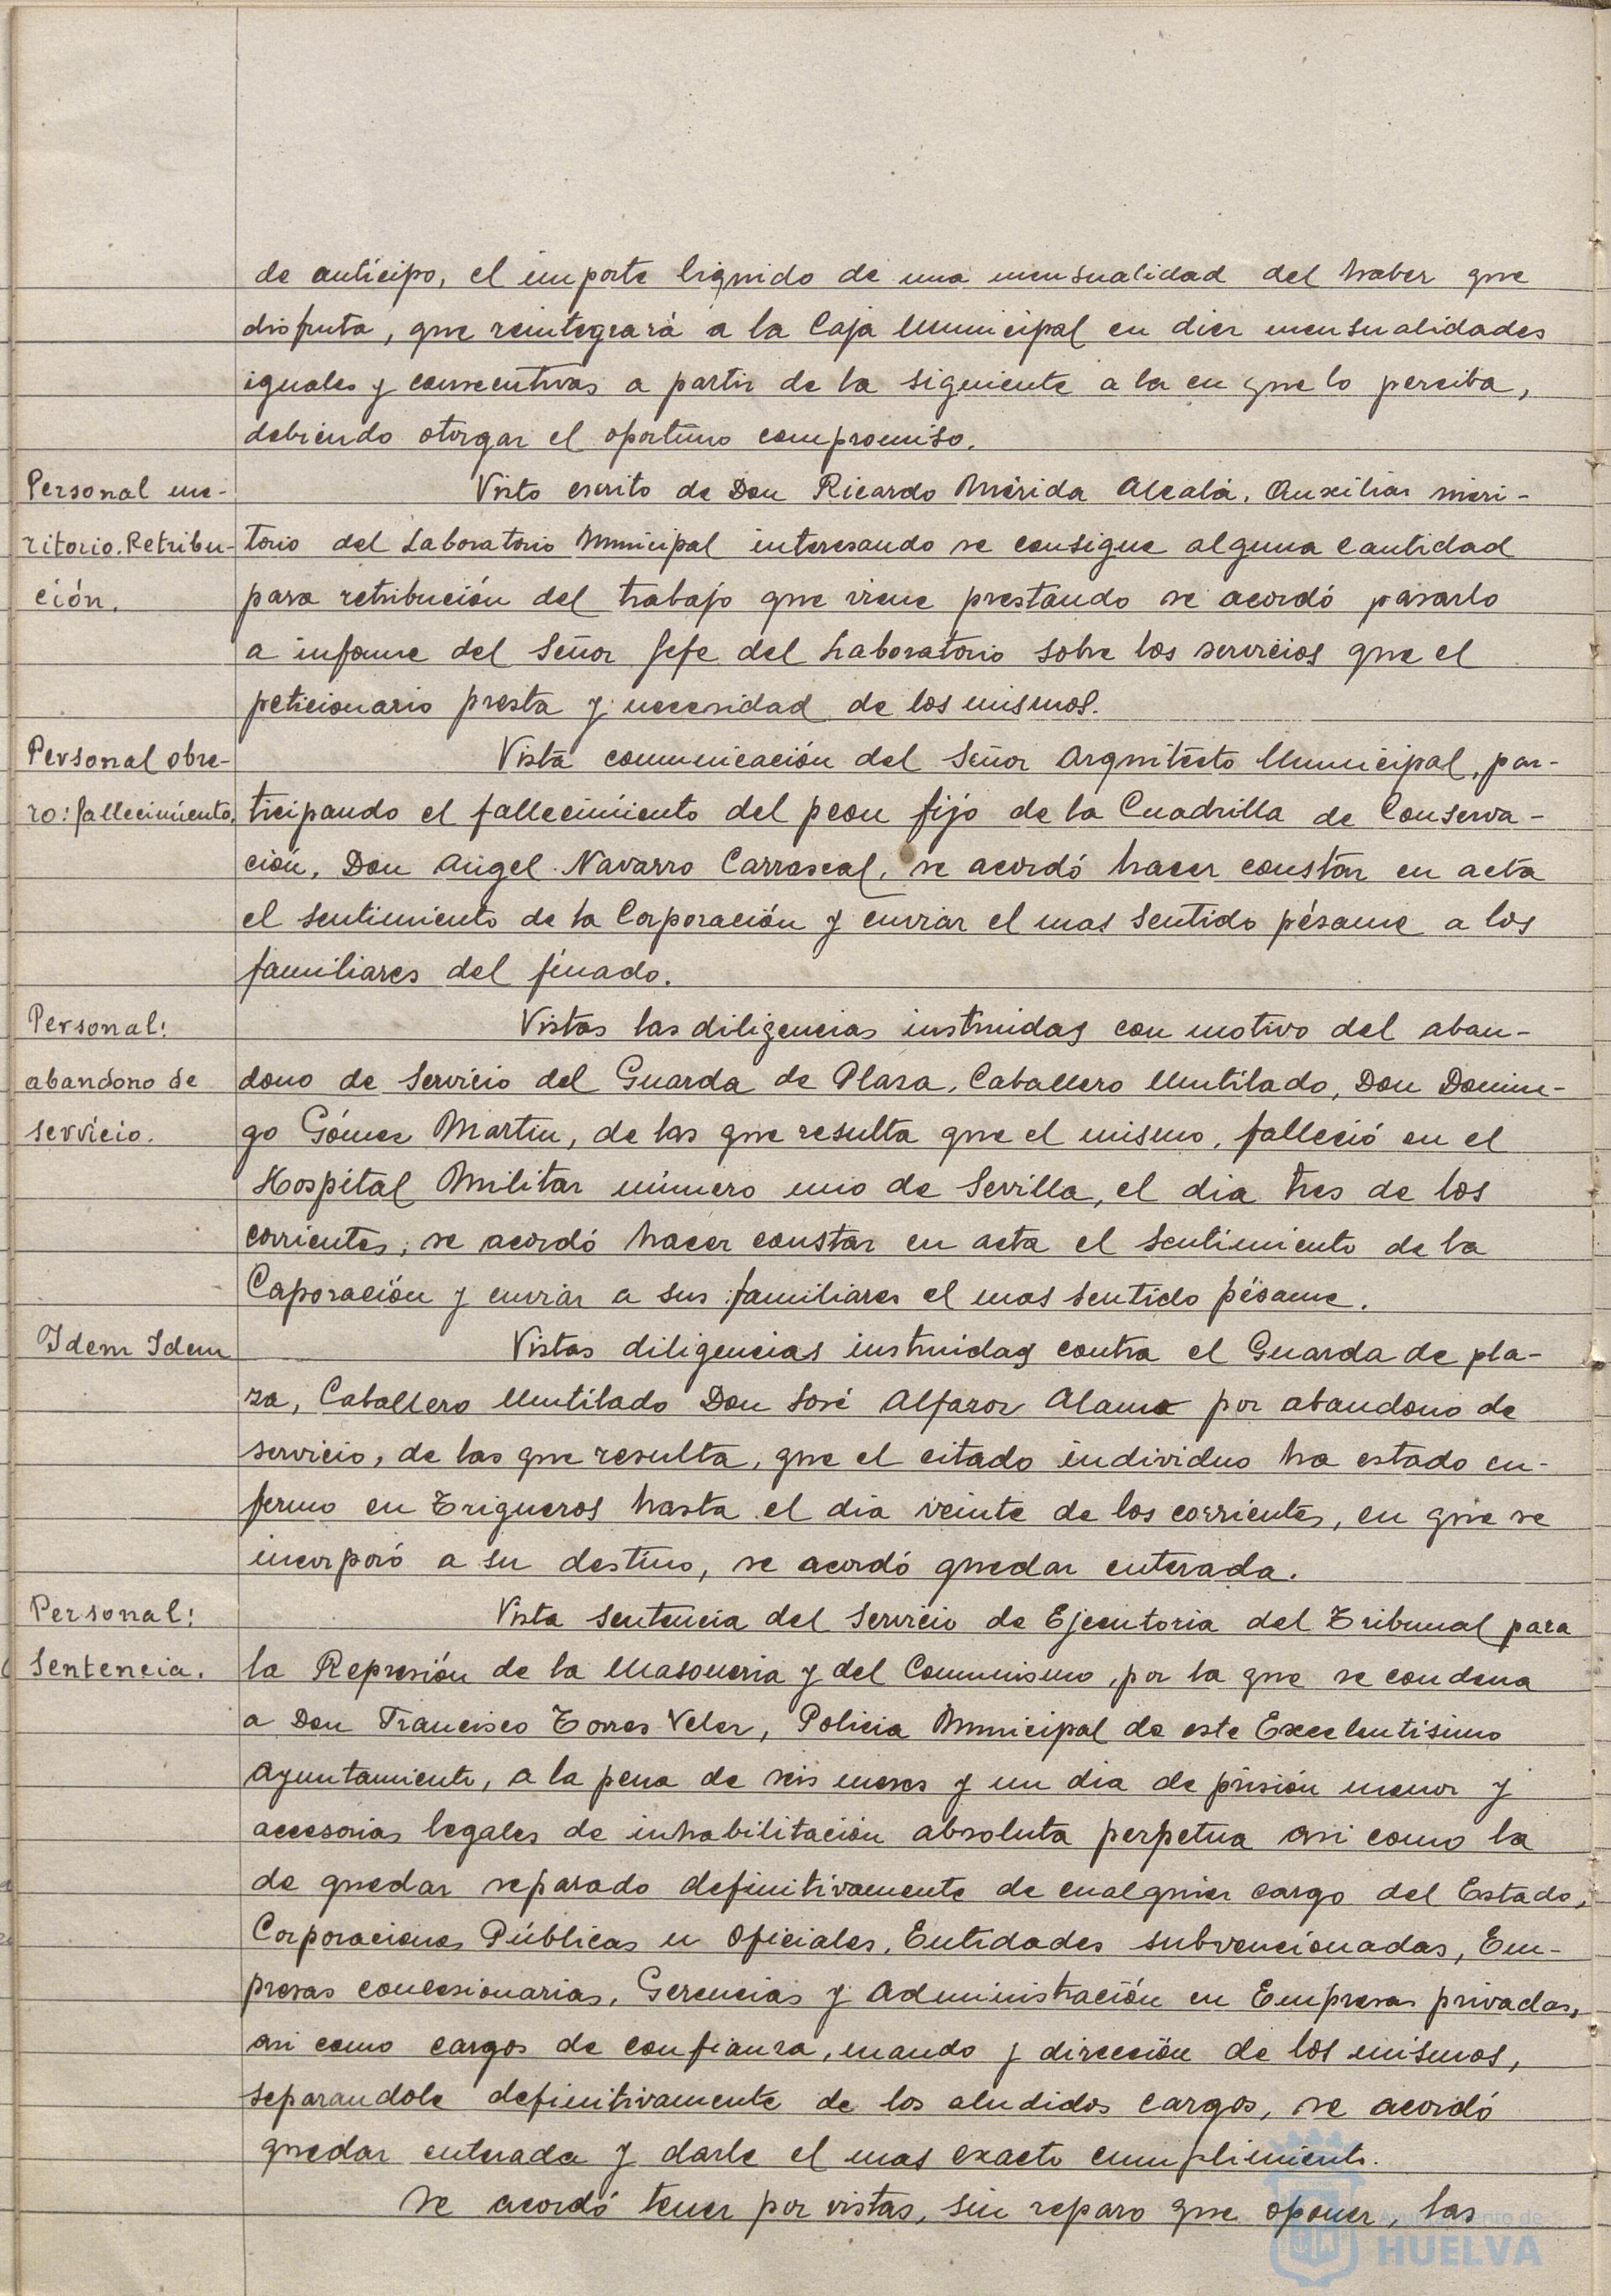 de anticipo, el importe liquido de una mensualidad del haber que
disfruta, que reintegrará a la Caja Municipal en diez mensualidades
iguales y consecutivas a partir de la siguiente a la en que lo perciba,
debiendo otorgar el oportuno compromiso.
Personal me-
ritorio. Retribu-
ción.
Visto escrito de Don Ricardo Mérida Alcalá, Auxiliar meri-
torio del Laboratorio Municipal interesando se consigue alguna cantidad
para retribución del trabajo que viene prestando se acordó pasarlo
a informe del Señor Jefe del Laboratorio sobre los servicios que el
peticionario presta y necesidad de los mismos.
Personal obre-
ro: fallecimiento.
Vista comunicación del Señor Arquitecto Municipal, par-
ticipando el fallecimiento del peon fijo de la Cuadrilla de Conserva-
ción, Don Angel Navarro Carrascal, se acordó hacer constar en acta
el sentimiento de la Corporación y enviar el mas sentido pésame a los
familiares del finado.
Personal:
abandono de
servicio.
Vistas las diligencias instruidas con motivo del aban-
dono de Servicio del Guarda de Plaza, Caballero Mutilado, Don Domin-
go Gómez Martin, de las que resulta que el mismo, falleció en el
Hospital Militar número uno de Sevilla, el dia tres de los
corrientes; se acordó hacer constar en acta el sentimiento de la
Corporación y enviar a sus familiares el mas sentido pésame.
Idem Idem
Vistas diligencias instruidas contra el Guarda de pla-
za, Caballero Mutilado Don José Alfaroz Alamo por abandono de
servicio, de las que resulta, que el citado individuo ha estado en-
fermo en Trigueros hasta el dia veinte de los corrientes, en que se
incorporó a su destino, se acordó quedar enterada.
Personal:
Sentencia.
Vista sentencia del Servicio de Ejecutoria del Tribunal para
la Represión de la Masoneria y del Comunismo, por la que se condena
a Don Francisco Torres Velez, Policia Municipal de este Excelentisimo
Ayuntamiento, a la pena de seis meses y un dia de prisión menor y
accesorias legales de inhabilitación absoluta perpetua asi como la
de quedar separado definitivamente de cualquier cargo del Estado,
Corporaciones Públicas u Oficiales, Entidades subvencionadas, Em-
presas concesionarias, Gerencias y Administración en Empresas privadas,
asi como cargos de confianza, mando y dirección de los mismos,
separandole definitivamente de los aludidos cargos, se acordó
quedar enterada y darle el mas exacto cumplimiento.
Se acordó tener por vistas, sin reparo que oponer, las
Ayuntamiento de
HUELVA